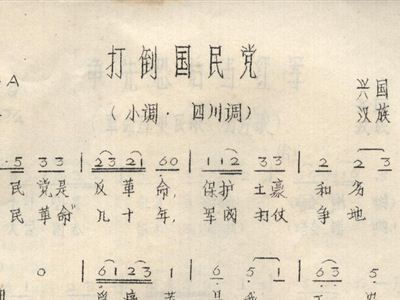 打倒国民党
A
(小调·四川调)
兴国
汉族
·5 33 | 23 21 60 | 112 33 | 2 2 3
民 党是 反 革 命, 保护 土豪 和 劣
民 革命" 几 十 年, 军阀 打仗 争 地
0 | 6123 1 | 6 5 1 | 63 5